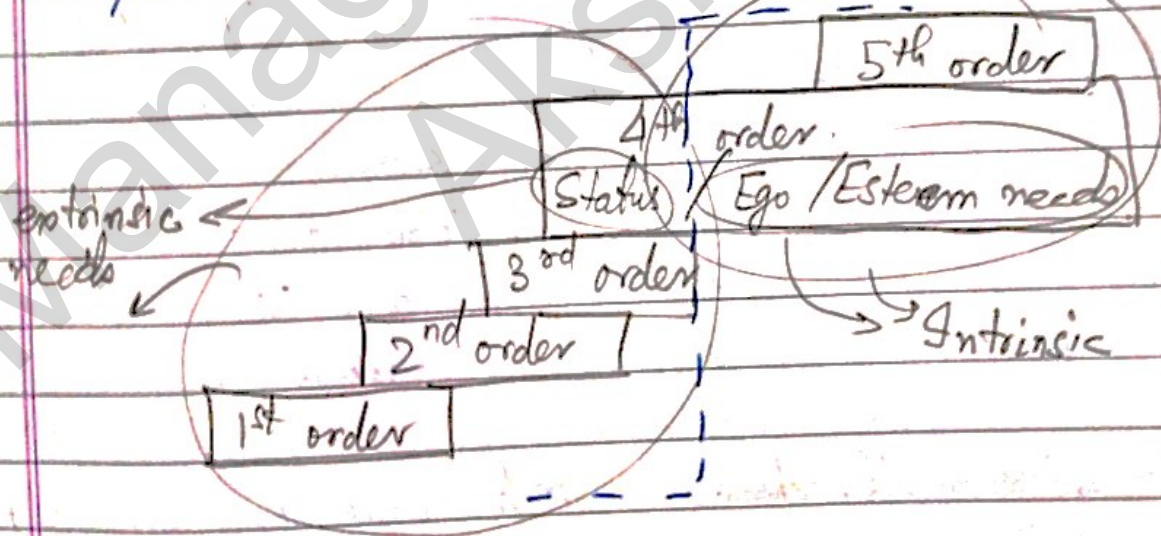 5th order
4th order.
Status / Ego / Esteem needs
extrinsic
needs
3rd order
Intrinsic
2nd order
1st order